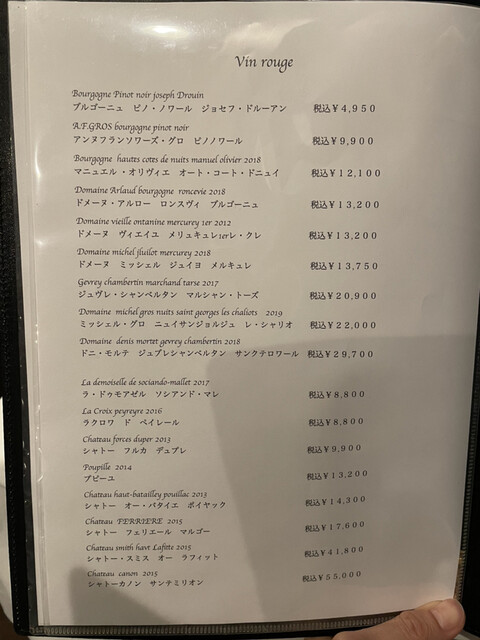 Vin rouge
Bourgogne Pinot noir joseph Drouin
ブルゴーニュ ピノ・ノワール ジョセフ・ドルーアン 税込¥4,950
A.F.GROS bourgogne pinot noir
アンヌフランソワーズ・グロ ピノノワール 税込¥9,900
Bourgogne hautes cotes de nuits manuel olivier 2018
マニュエル・オリヴィエ オート・コート・ドニュイ 税込¥12,100
Domaine Arlaud bourgogne roncevie 2018
ドメーヌ・アルロー ロンスヴィ ブルゴーニュ 税込¥13,200
Domaine vieille ontanine mercurey 1er 2012
ドメーヌ ヴィエイユ メリュキュレ1erレ・クレ 税込¥13,200
Domaine michel jluilot mercurey 2018
ドメーヌ ミッシェル・ジュイヨ メルキュレ 税込¥13,750
Gevrey chambertin marchand tarse 2017
ジュヴレ・シャンベルタン マルシャン・トーズ 税込¥20,900
Domaine michel gros nuits saint georges les chaliots 2019
ミッシェル・グロ ニュイサンジョルジュ レ・シャリオ 税込¥22,000
Domaine denis mortet gevrey chambertin 2018
ドニ・モルテ ジュブレシャンベルタン サンクテロワール 税込¥29,700
La demoiselle de sociando-mallet 2017
ラ・ドゥモアゼル ソシアンド・マレ 税込¥8,800
La Croix peyreyre 2016
ラクロワ ド ペイレール 税込¥8,800
Chateau forces duper 2013
シャトー フルカ デュプレ 税込¥9,900
Poupille 2014
プピーユ 税込¥13,200
Chateau haut-batailley pouillac 2013
シャトー オー・バタイエ ポイヤック 税込¥14,300
Chateau FERRIERE 2015
シャトー フェリエール マルゴー 税込¥17,600
Chateau smith havt Lafite 2015
シャトー・スミス オー ラフィット 税込¥41,800
Chateau canon 2015
シャトーカノン サンテミリオン 税込¥55,000